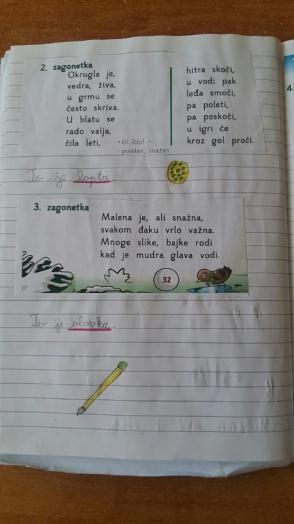 2. zagonetka
Okrugla je,
vedra, živa,
u grmu se
često skriva.
U blatu se
rado valja,
čila leti,
hitra skoči,
u vodi pak
leđa smoči,
pa poleti,
pa poskoči,
u igri će
kroz gol proći.
poletan, snažan
To je lopta.
3. zagonetka
Malena je, ali snažna,
svakom đaku vrlo važna.
Mnoge slike, bajke rodi
kad je mudra glava vodi.
32
To je olovka.
4.